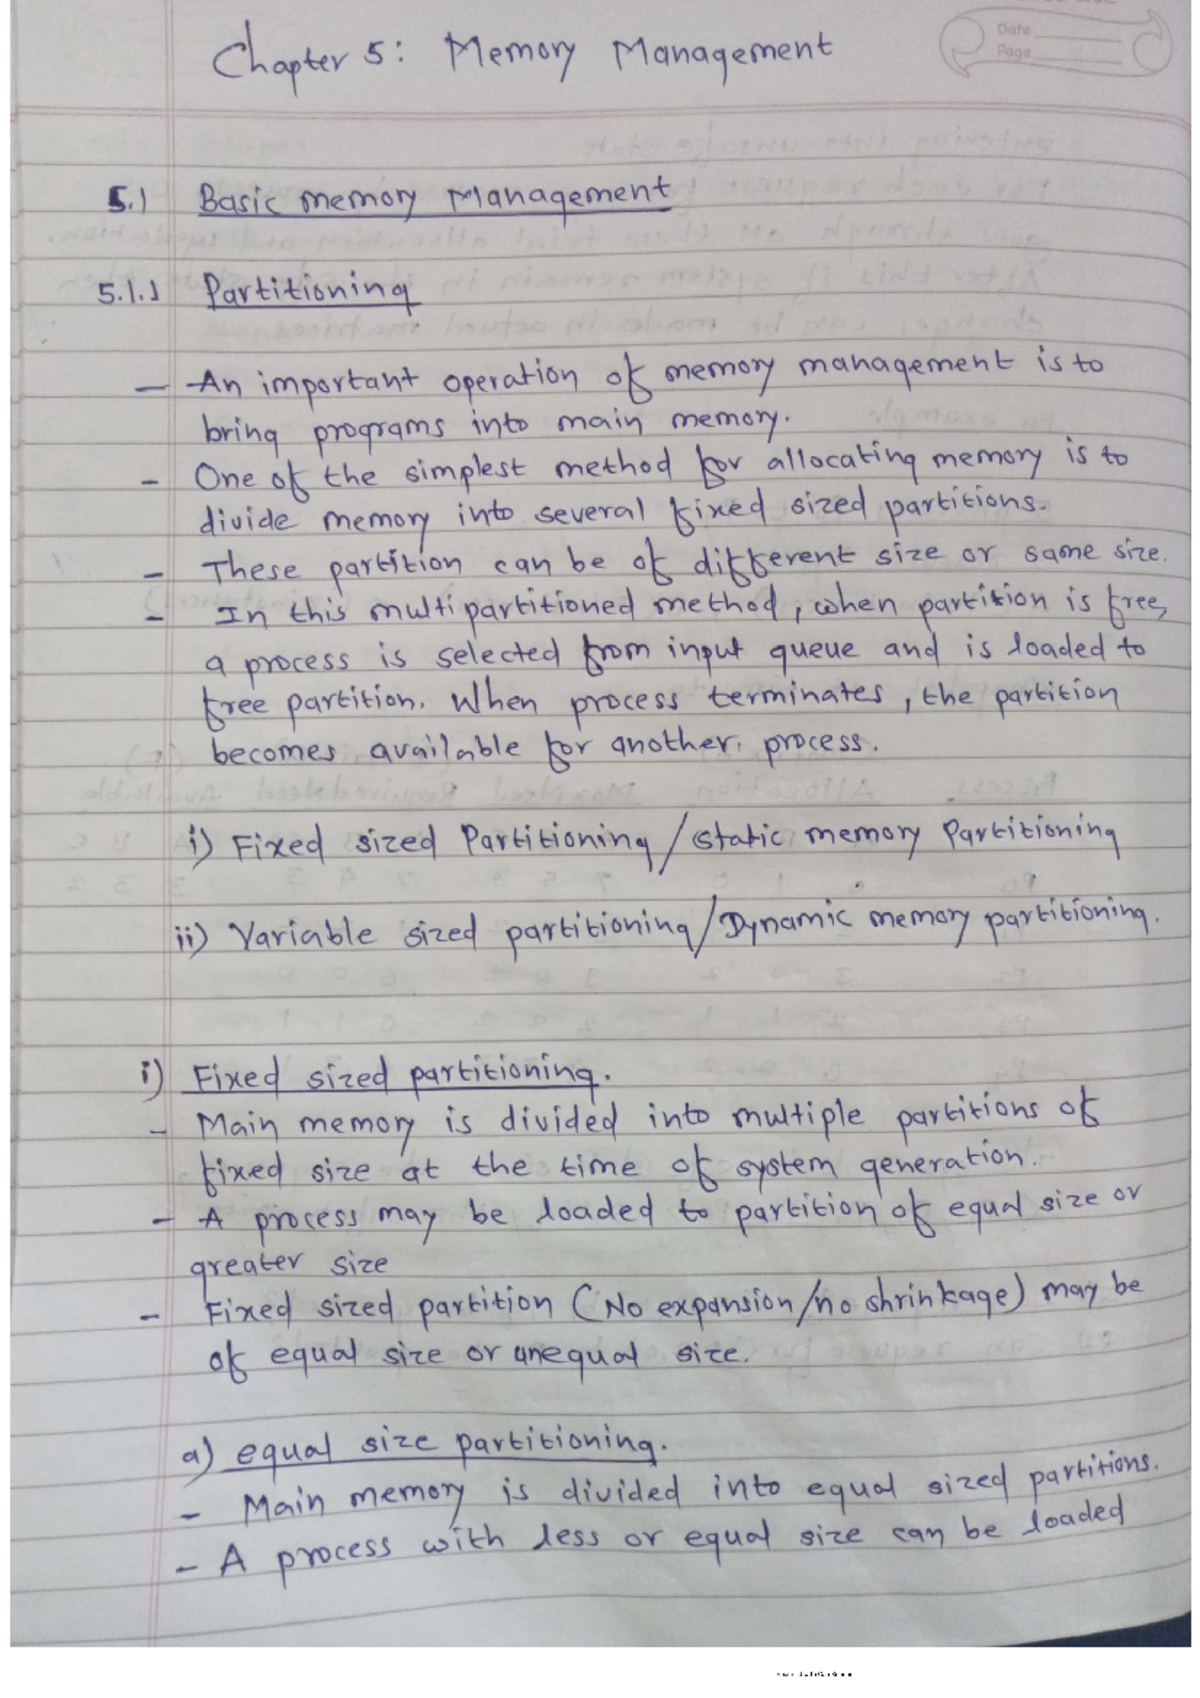 Date
Page
Chapter 5: Memory Management
5.1 Basic memory Management
5.1.1 Partitioning
- An important operation of memory management is to
bring programs into main memory.
- One of the simplest method for allocating memory is to
divide memory into several fixed sized partitions.
- These partition can be of different size or same size.
- In this multipartitioned method, when partition is free,
a process is selected from input queue and is loaded to
free partition. When process terminates, the partition
becomes available for another process.
i) Fixed sized Partitioning / static memory Partitioning
ii) Variable sized partitioning / Dynamic memory partitioning.
i) Fixed sized partitioning.
- Main memory is divided into multiple partitions of
fixed size at the time of system generation.
- A process may be loaded to partition of equal size or
greater size
- Fixed sized partition (No expansion/no shrinkage) may be
of equal size or unequal size.
a) equal size partitioning.
- Main memory is divided into equal sized partitions.
- A process with less or equal size can be loaded